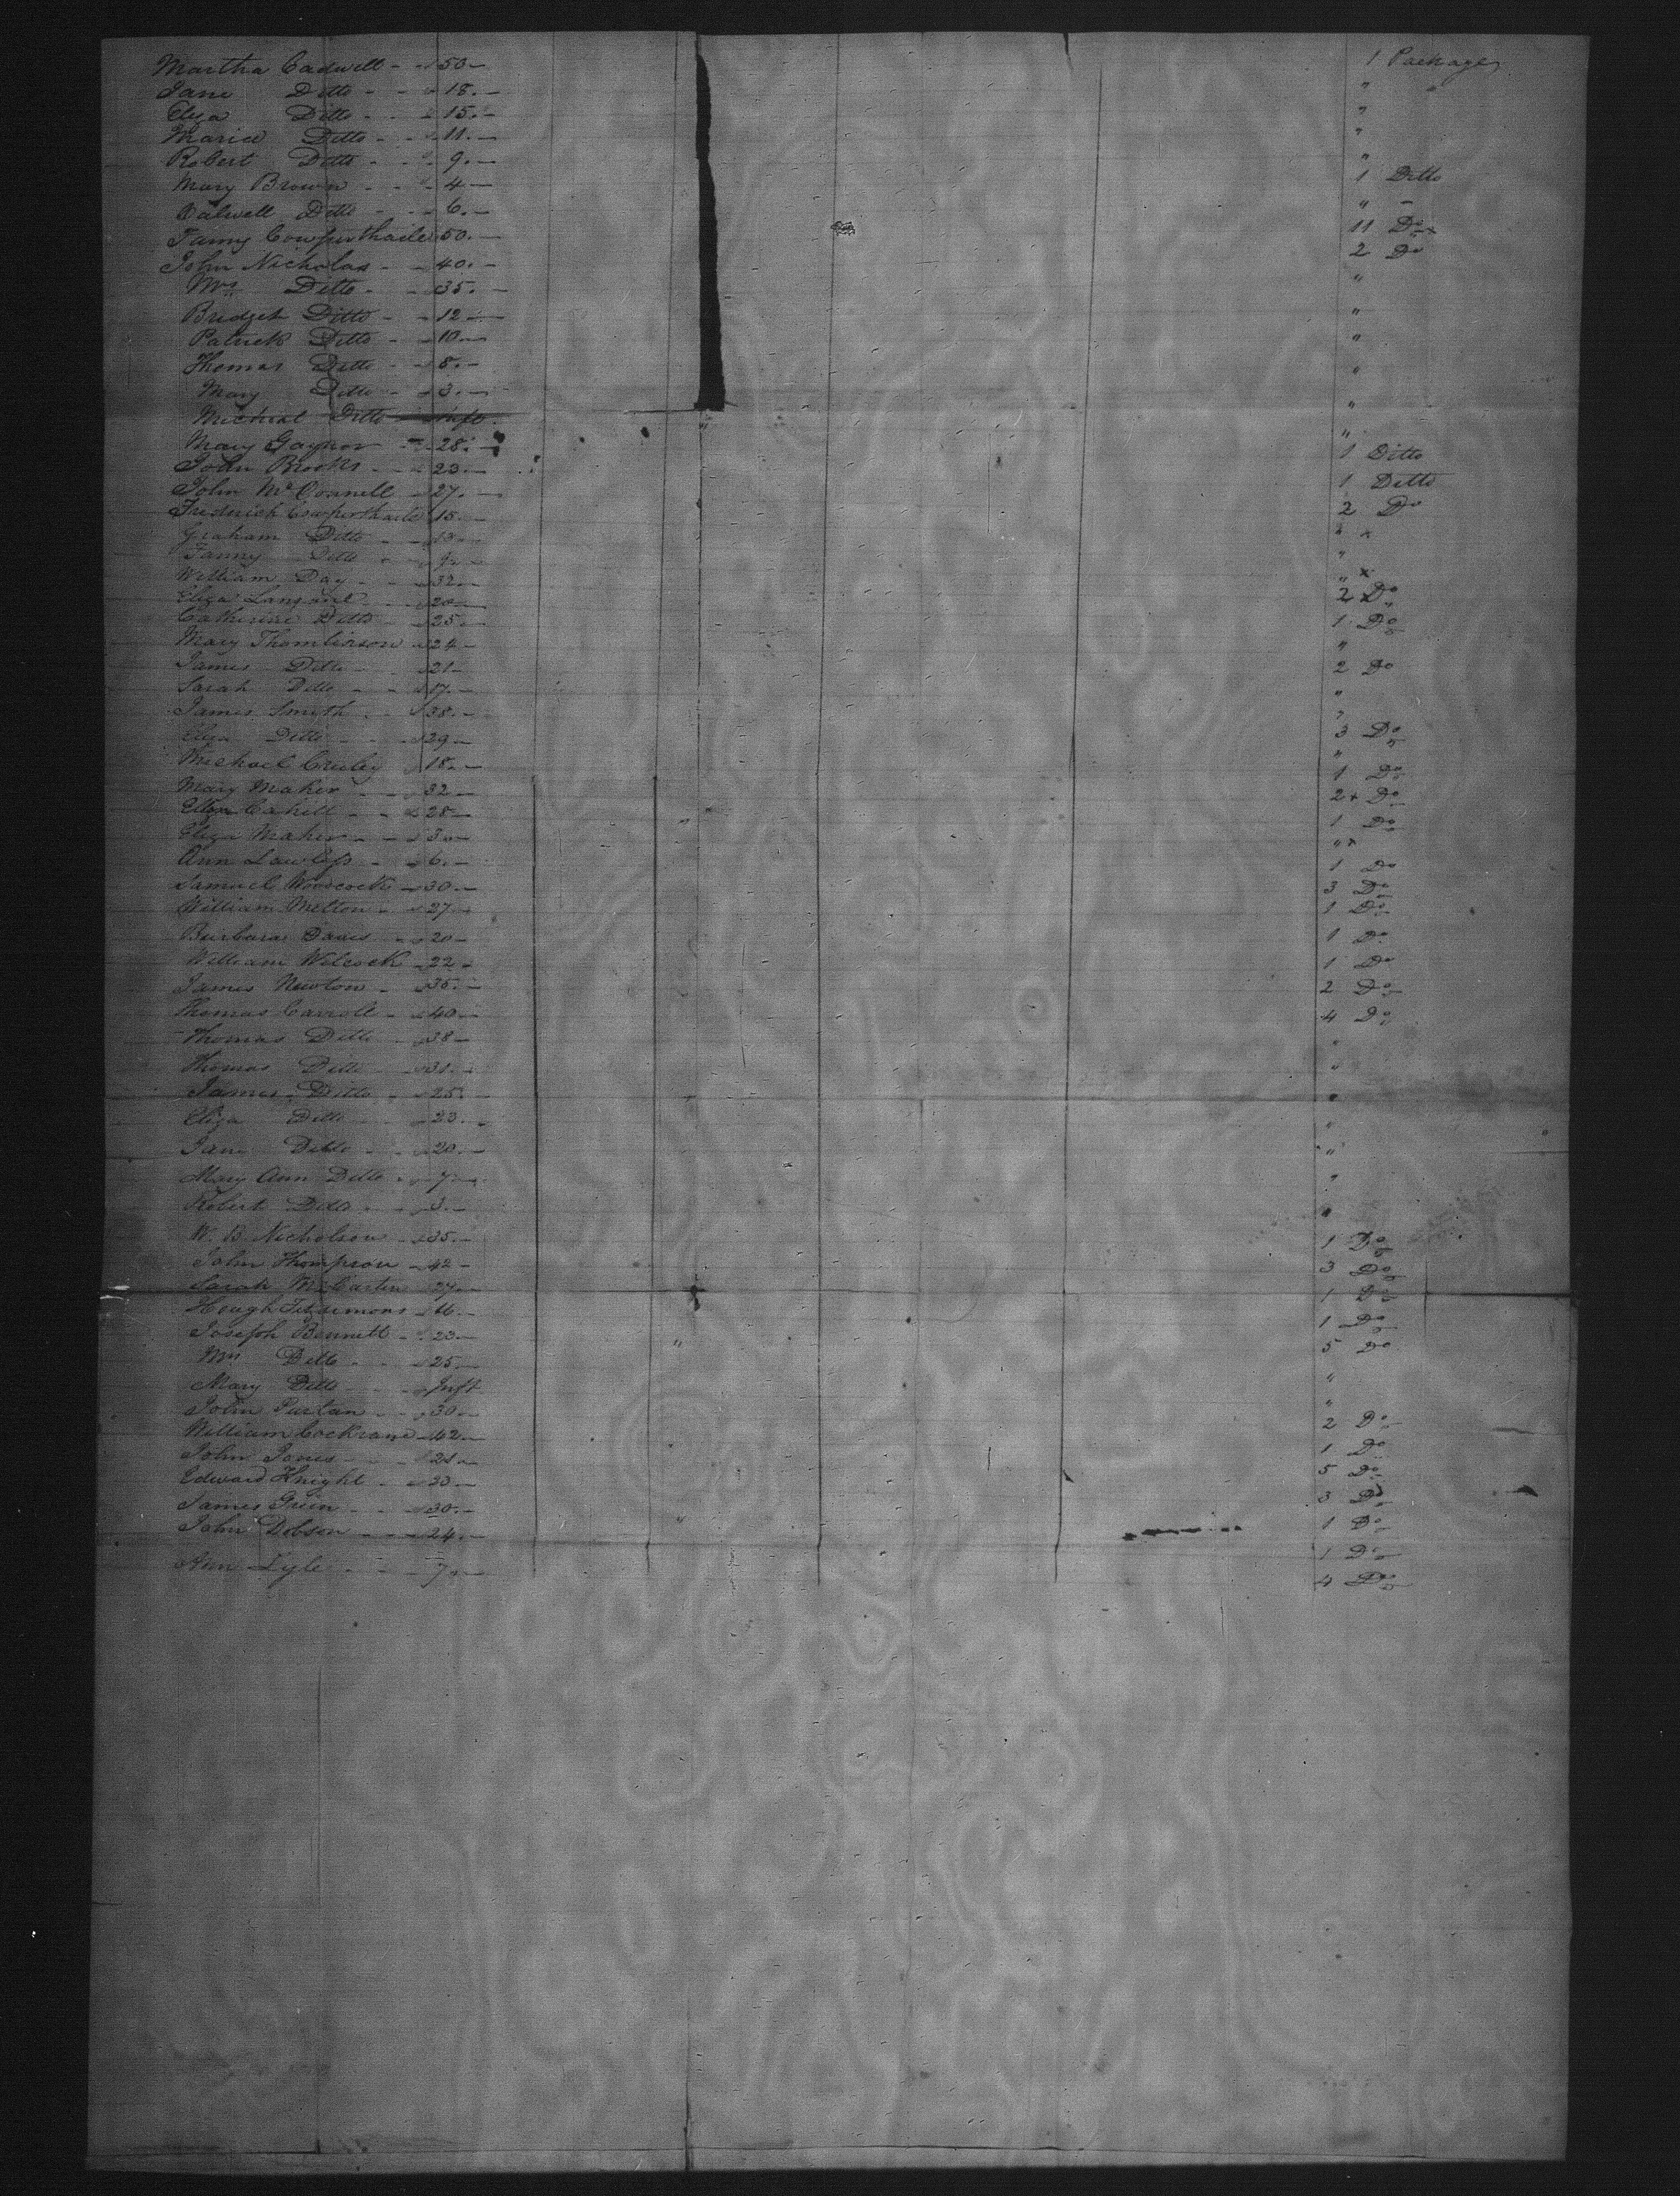 Martha Cadwell - - 50 - 1 Package
Jane Ditto - - 18. - "
Eliza Ditto - - 15. - "
Maria Ditto - - 11. - "
Robert Ditto - - 9. - "
Mary Brown - - 4 - 1 Ditto
Calwell Ditto - - 6. - " -
Fanny Cowperthaite 50. - 11 Do x
John Nicholas - - 40. - 2 Do
Mrs Ditto - - 35. - "
Bridget Ditto - - 12 - "
Patrick Ditto - 10 - "
Thomas Ditto - - 8. - "
Mary Ditto - 3. - "
Micheal Ditto Inft. "
Mary Gaynor - 28. - 1 Ditto
John Brooks - - 23 - 1 Ditto
John McConnell - 27. - 2 Do
Frederick Cowperthaite 15. - " x
Graham Ditto - 13 - "
Fanny Ditto - 9. - " x
William Day - - 32. - 2 x Do
Eliza 20 - 1 Do
Catherine Ditto - 25. - "
Mary Thomlinson - 24 - 2 Do
James Ditto - 21 - "
Sarah Ditto - - 17. - "
James Smyth - - 38. - 3 Do
Eliza Ditto - - 29 - "
Michael 18. - 1 Do
Mary Maher - - 32 - 2 x Do
Ellen Cahill - - 28 - 1 Do
Eliza Maher - - 3 - " x
Ann Lawless - - 6. - 1 Do
Samuel Woodcock - 30. - 3 Do
William Melton - 27 - 1 Do
Barbara Davis - - 20 - 1 Do
William Wilcock - 22 - 1 Do
James Newton - 35. - 2 Do
Thomas Carroll - 40 - 4 Do
Thomas Ditto - 38 - "
Thomas Ditto - "
James Ditto - 25. "
Eliza Ditto - 23. - "
Jane Ditto - 20. - "
Mary Ann Ditto - 7 - "
Robert Ditto - 3. - "
W. B. Nicholson - 35. - 1 Do
John Thompson - 42 - 3 Do
Sarah 1 Do
Hough Fitzsimons - 16. - 1 Do
Joseph Bennett - 23. - " 5 Do
Mrs Ditto - - 25. - "
Mary Ditto - - Inft "
John - 30. - 2 Do
William Cockrane - 42. - 1 Do
John Jones - 21 - 5 Do
Edward Knight - - 33 - 3 Do
James Green - - 30. - " 1 Do
John Dobson - - 24. - 1 Do
Ann Lyle - - 7. - 4 Do